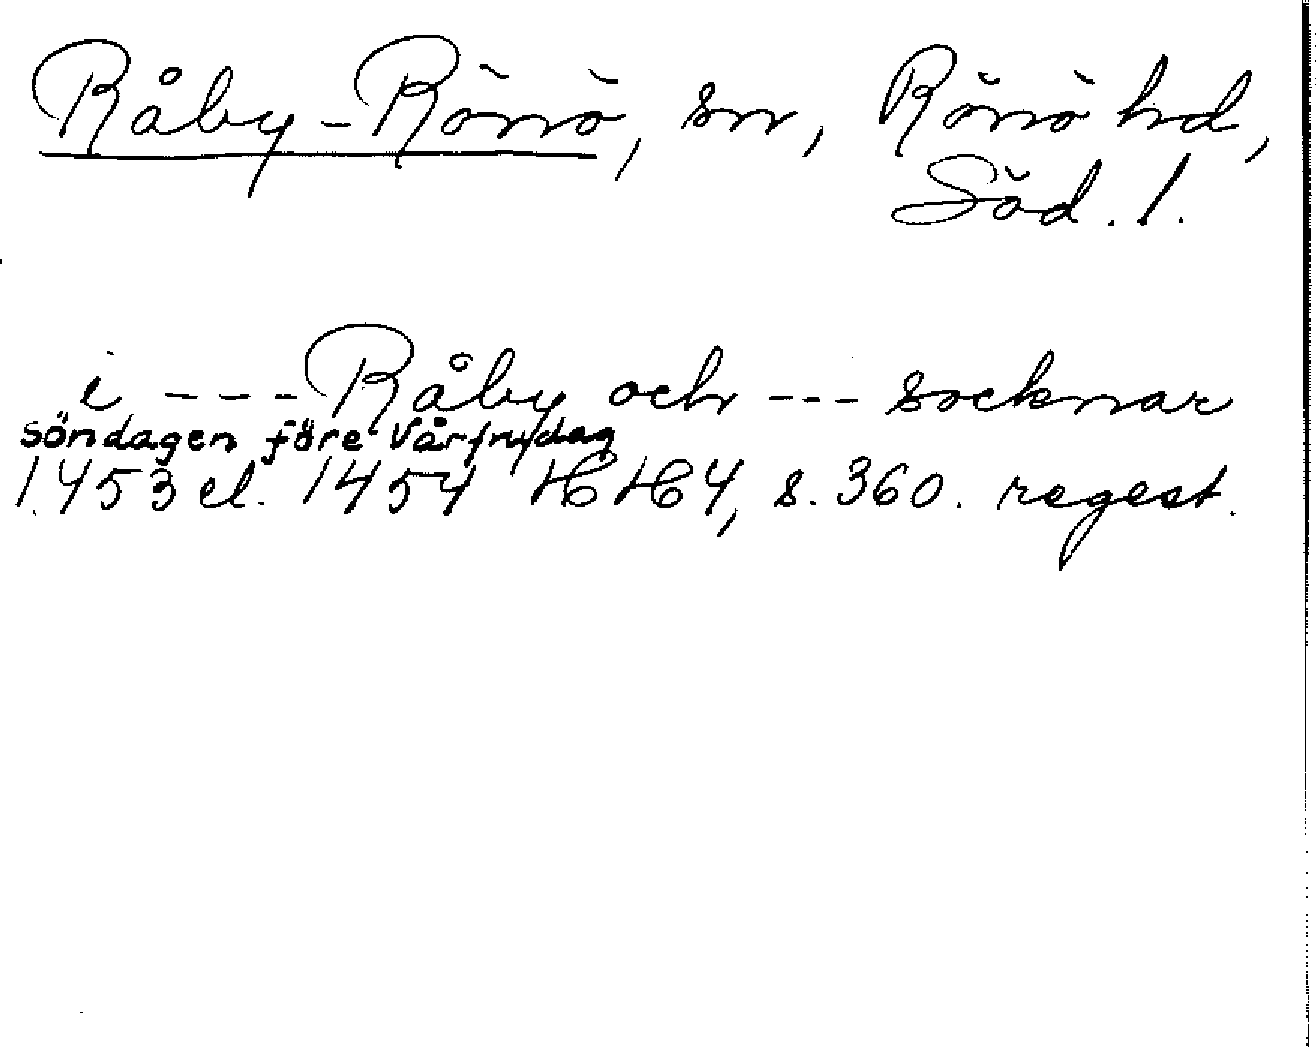 Råby-Rönö, sn, Rönö hd,
Söd. l.
i --- Råby och --- socknar
söndagen före Vårfrudag
1453 el. 1454 HH 4, s. 360. regest.